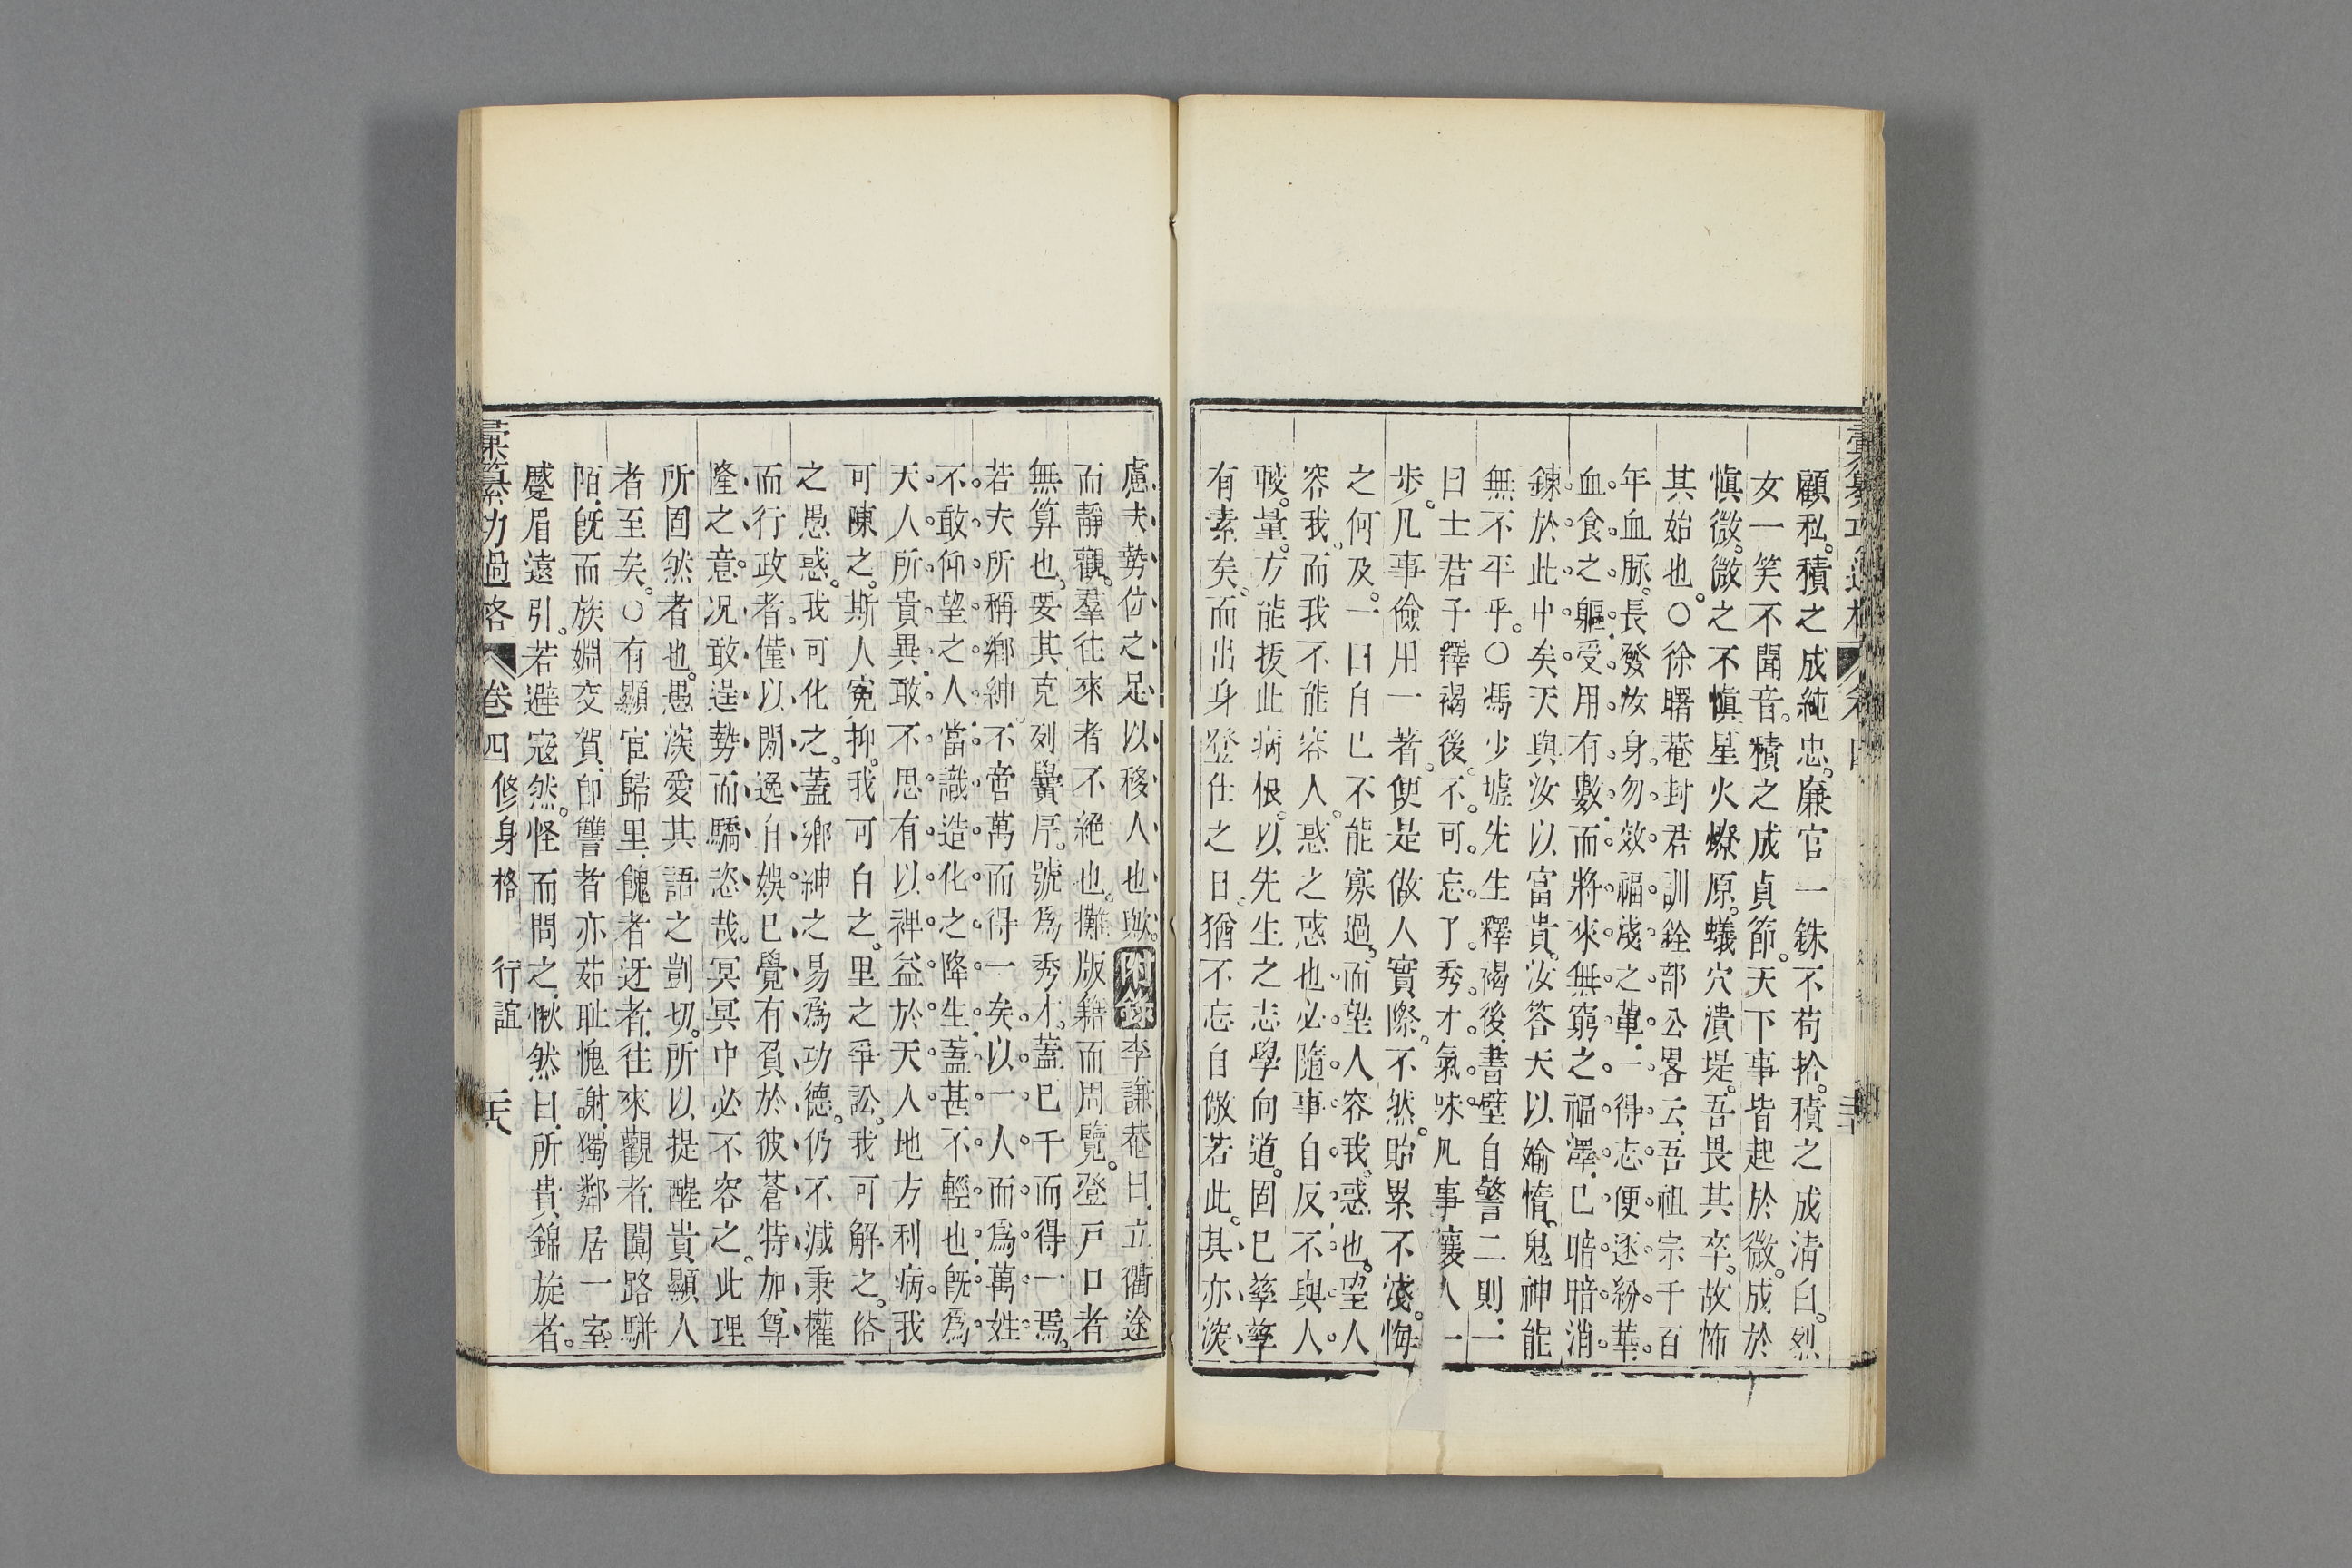 顧私。積之成純忠。廉官一銖不苟拾。積之成淸白。烈
女一笑不聞音。積之成貞節。天下事皆起於微。成於
愼微。微之不愼。星火燎原。蟻穴潰堤。吾畏其卒。故怖
其始也。○徐曙菴封君訓銓部公畧云。吾祖宗千百
年血脈。長發汝身。勿效福淺之輩。一得志便逐紛華。
血食之軀。受用有數。而將來無窮之福澤。已暗暗消
鍊於此中矣。天與汝以富貴。汝答天以婾惰。鬼神能
無不平乎。○馮少墟先生釋褐後。書壁自警二則。一
曰士君子釋褐後。不可忘了秀才氣味。凡事讓人一
步。凡事儉用一著。便是做人實際。不然。貽累不淺。悔
之何及。一曰自己不能寡過。而望人容我。惑也。望人
容我。而我不能容人。惑之惑也。必隨事自反。不與人
啖。量。方能拔此病恨。以先生之志學向道。固已孳孳
有素矣。而出身登仕之日。猶不忘自儆若此。其亦深
慮夫勢位之足以移人也歟。附錄李謙菴曰。立衢途
而靜觀。羣往來者不絕也。攤版籍而周覽。登戶口者
無算也。要其克列黌序。號爲秀才。蓋已千而得一焉。
若夫所稱鄕紳。不啻萬而得一矣。以一人而爲萬姓
不敢仰望之人。當識造化之降生。蓋甚不輕也。旣爲
天人所貴異。敢不思有以裨益於天人。地方利病。我
可陳之。斯人寃抑。我可白之。里之爭訟。我可解之。俗
之愚惑。我可化之。蓋鄕紳之易爲功德。仍不減秉權
而行政者。僅以閒逸自娛。已覺有負於彼蒼特加尊
隆之意。况敢逞勢而驕恣哉。冥冥中必不容之。此理
所固然者也。愚深愛其語之剴切。所以提醒貴顯人
者至矣。○有顯宦歸里。餽者迓者。往來觀者。闐路駢
陌。旣而族婣交賀。卽讐者亦茹耻愧謝。獨鄰居一室。
蹙眉遠引。若避寇然。怪而問之。愀然曰。所貴錦旋者。
彙纂功過格 卷四 修身格 行誼